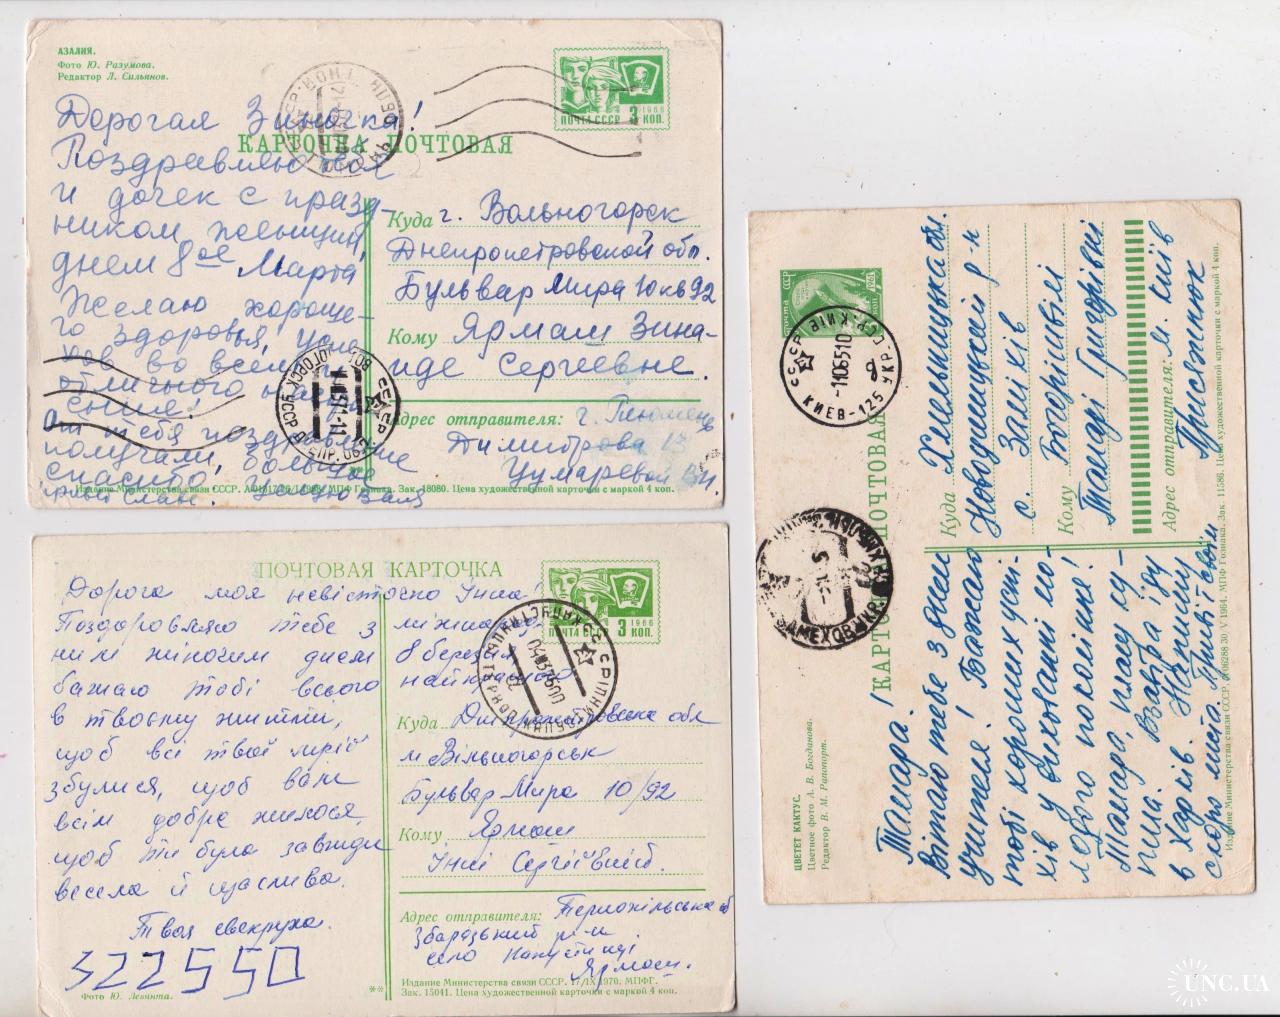 АЗАЛИЯ.
Фото Ю. Разумова.
Редактор Л. Сильянов.
1966
ПОЧТА СССР 3 КОП.
КАРТОЧКА ПОЧТОВАЯ
Дорогая Зиночка!
Поздравляю вас
и дочек с празд-
ником женщин,
днем 8ое Марта
Желаю хороше-
го здоровья, успе-
хов во всём и
отличного на-
От тебя поздравление
получали, большое
спасибо.
Куда г. Вольногорск
Днепропетровской обл.
Бульвар Мира 10 кв 92
Кому Ярмаш Зина-
иде Сергеевне.
Адрес отправителя: г. Тюмень
Димитрова 13
Издание Министерства связи СССР. МПФ Гознака. Зак. 18080. Цена художественной карточки с маркой 4 коп.
ПОЧТОВАЯ КАРТОЧКА
1966
ПОЧТА СССР 3 КОП.
Дорога моя невісточко Інна!
Поздоровляю тебе з міжнарод
ним жіночим днем 8 березня
бажаю тобі всього найкращого
в твоєму житті,
щоб всі твої мрії
збулися, щоб вам
всім добре жилося,
щоб ти була завжди
весела й щаслива.
Твоя свекруха.
322550
Фото Ю. Левянта.
Куда Дніпропетровська обл
м Вільногорськ
Бульвар Мира 10/92
Кому Ярмаш
Інні Сергіївні
Адрес отправителя: Тернопільська об
Збаразький р-н
село
Ярмаш.
**
Издание Министерства связи СССР. 17/IX 1970. МПФГ.
Зак. 15041. Цена художественной карточки с маркой 4 коп.
КАРТОЧКА ПОЧТОВАЯ
СССР КИЕВ-125
Куда Хмельницька обл.
Новоушицький р-н
с. Заміхів
Кому Богорішвілі
Тамарі Григорівні
Адрес отправителя: м. Київ
Присяжнюк
Тамара!
Вітаю тебе з днем
учителя! Бажаю
тобі хороших успі-
хів у вихованні мо-
лодого покоління!
Тамара, плащ ку-
пила. Взавтра їду
в Харків. Напишу
скоро листа. Привіт всім
ЦВЕТЕТ КАКТУС.
Цветное фото А. В. Богданова.
Редактор В. М. Рапопорт.
Издание Министерства связи СССР. 30.V 1964. МПФ Гознака. Зак. 11586. Цена художественной карточки с маркой 4 коп.
UNC.UA